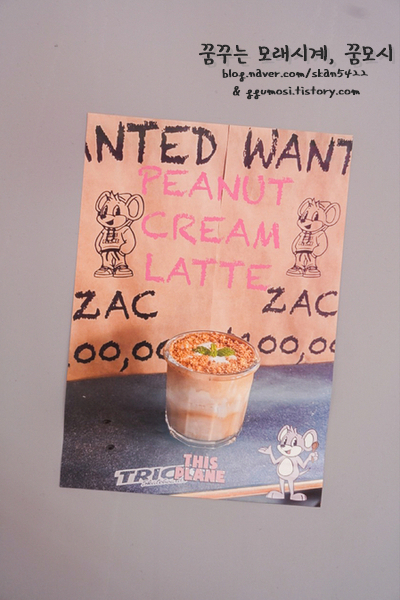 꿈꾸는 모래시계, 꿈모시
blog.naver.com/skan5422
& ggumosi.tistory.com
ANTED WANT
PEANUT
CREAM
LATTE
ZAC ZAC
THIS
PLANE